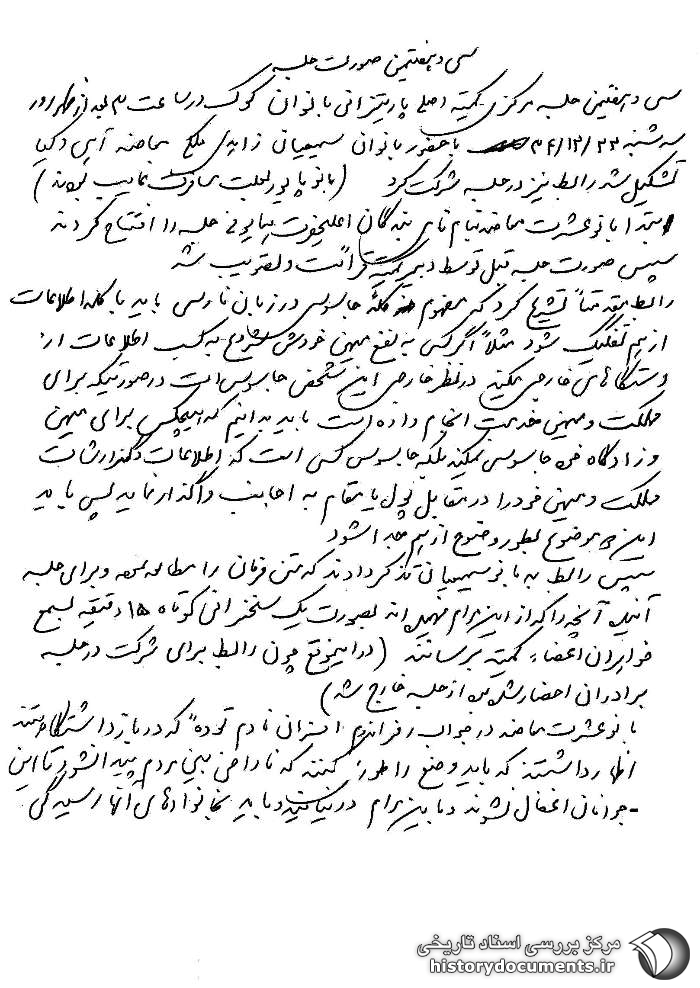 سی و هفتمین صورت جلسه
سی و هفتمین جلسه مرکزی کمیته اصلی پارتیزانی بانوان کوک در ساعت ۳ بعد از ظهر روز
سه شنبه ۳۶/۱۲/۲۳ با حضور بانوان سمیعیان زاهدی ملکی معاضد آهی و کیا
تشکیل شد رابط نیز در جلسه شرکت کرد (بانو پاپور بعلت مسافرت غایب بودند)
ابتدا بانو عشرت معاضد بنام نامی بندگان اعلیحضرت همایونی جلسه را افتتاح کردند
سپس صورت جلسه قبل توسط دبیر کمیته قرائت و تصویب شد
رابطه بقدمتاً تشریح کرد که مفهوم کلمهٔ جاسوسی در زبان فارسی باید با کلمه اطلاعات
از هم تفکیک شود مثلاً اگر کسی به نفع میهن خودش شروع به کسب اطلاعات از
دستگاه‌های خارجی میکند در نظر خارجی این شخص جاسوس است در صورتیکه برای
مملکت و میهن خدمت انجام داده است باید بدانیم که هیچکس برای میهن
و زادگاه خود جاسوسی نمیکند بلکه جاسوس کسی است که اطلاعات و گذارشات
مملکت و میهن خود را در مقابل پول یا مقام به اجانب واگذار نماید پس باید
این موضوع بطور وضوح از هم جدا شود
سپس رابط به بانو سمیعیان تذکر دادند که متن فرمان را مطالعه و برای جلسه
آینده آنچه را که از این مرام فهمیده اند بصورت یک سخنرانی کوتاه ۱۵ دقیقه بسمع
خواهران اعضاء کمیته برسانند (در این موقع چون رابط برای شرکت در جلسه
برادران احضار شد از جلسه خارج شد)
بانو عشرت معاضد در جواب رفراندم "افسران نادم توده" که در بازداشتگاه هستند
اظهار داشتند که باید وضع را طوری کنند که ناراضی بین مردم پیدا نشود تا این
جوانان اغفال نشوند و باین مرام در نیایند و باید بخانواده‌های آنها رسیدگی
مرکز بررسی اسناد تاریخی
historydocuments.ir